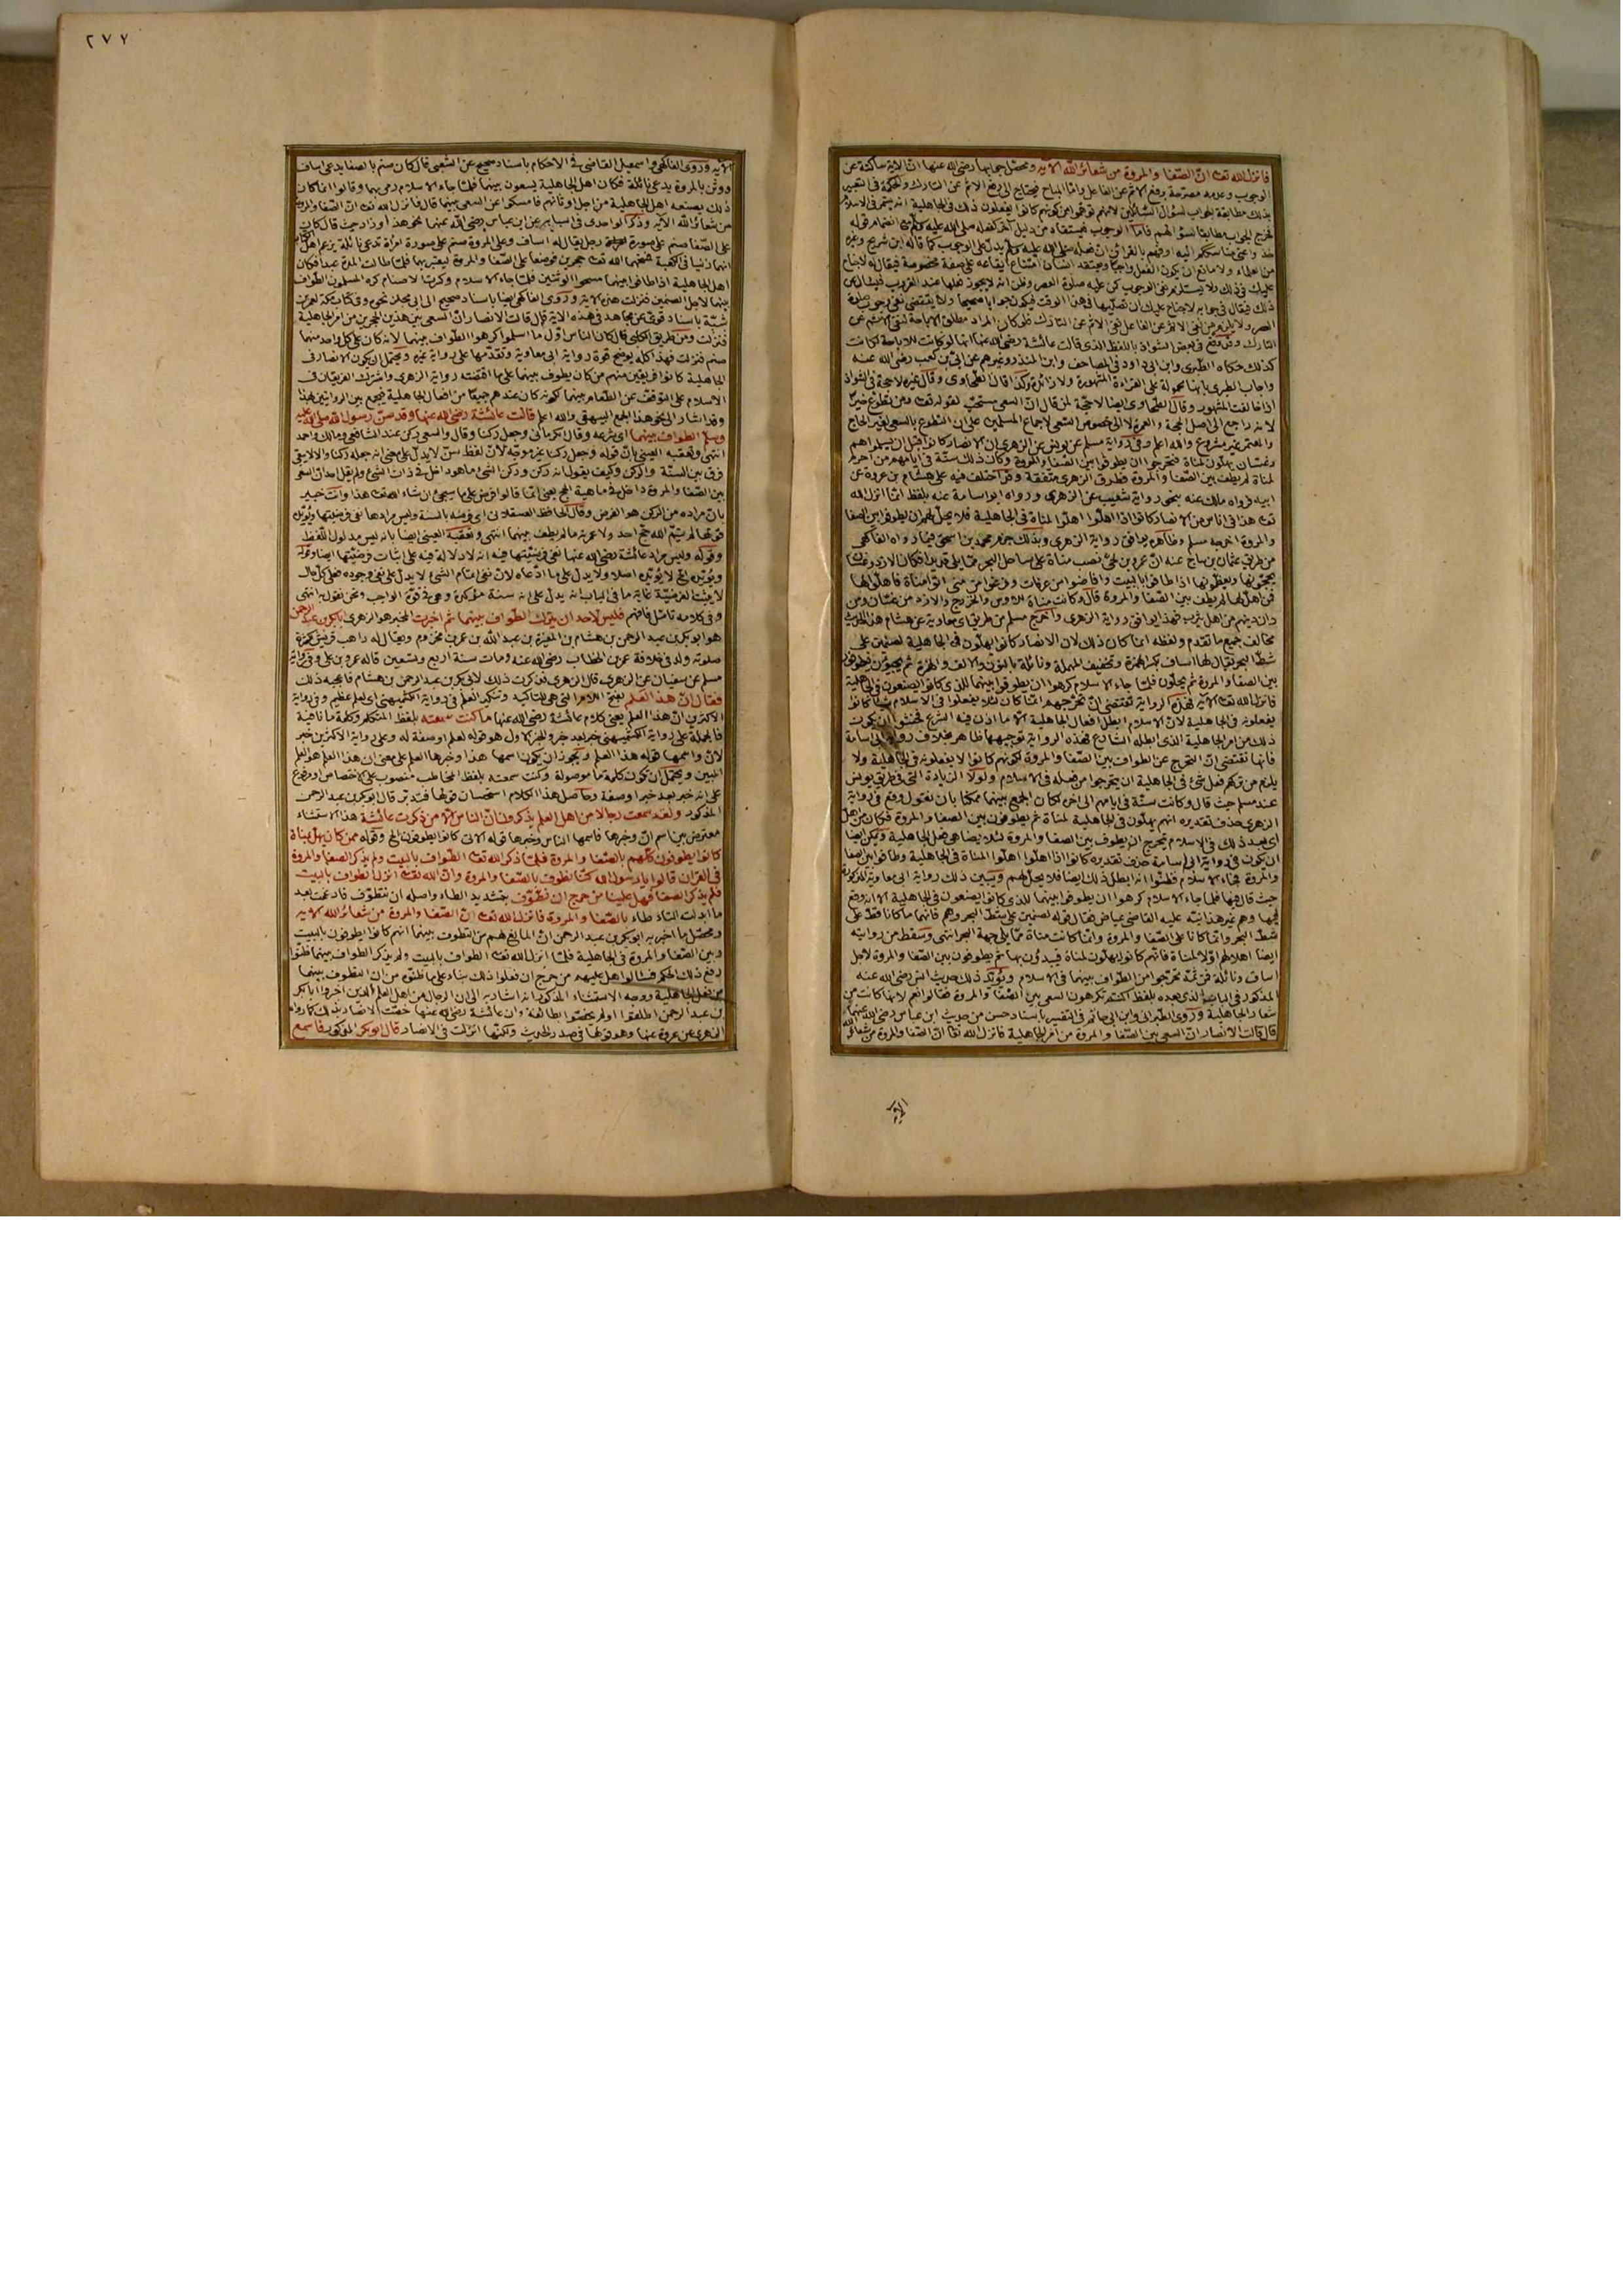 ٢٧٧
فانزل الله تعالى ان الصفا والمروة من شعائر الله الآية ومحصل جوابها رضي الله عنها ان الآية ساكتة عن
الوجوب وعدمه مصرحة برفع الاثم عن الفاعل واما المباح فيحتاج الى رفع الاثم عن التارك والحكمة في التعبير
بذلك مطابقة الجواب لسؤال السائلين لانهم توهموا من كونهم كانوا يفعلون ذلك في الجاهلية انه يستمر في الاسلام
فخرج الجواب مطابقا لسؤالهم فاما الوجوب فيستفاد من دليل آخر
من العلماء ولا مانع ان يكون الفعل واجبا ويعتقد انسان امتناع ايقاعه على صفة مخصوصة فيقال له لا جناح
عليك في ذلك ولا يستلزم نفي الوجوب كمن عليه صلوة العصر وظن انه لا يجوز فعلها عند الغروب فسأل عن
ذلك فيقال في جوابه لا جناح عليك ان تصليها في هذا الوقت فيكون جوابا صحيحا ولا يقتضي نفي وجوب صلاة
العصر ولا يلزم من نفي الاثم عن الفاعل نفي الاثم عن التارك فلو كان المراد مطلق الاباحة لنفى الاثم عن
التارك وقد وقع في بعض الشواذ باللفظ الذي قالت عائشة رضي الله عنها انها لو كانت للاباحة لكانت
كذلك حكاه الطبري وابن ابي داود في المصاحف وابن المنذر وغيرهم عن ابي بن كعب رضي الله عنه
واجاب الطبري بانها محمولة على القراءة المشهورة ولا زائدة وكذا قال الطحاوي وقال غيره لا حجة في الشواذ
اذا خالفت المشهور وقال الطحاوي ايضا لا حجة لمن قال ان السعي مستحب لقوله تعالى ومن تطوع خيرا
لانه راجع الى اصل الحجة والعمرة لا الى خصوص السعي لاجماع المسلمين على ان التطوع بالسعي لغير الحاج
والمعتمر غير مشروع والله اعلم وفي رواية مسلم عن يونس عن الزهري ان الانصار كانوا قبل ان يسلموا هم
وغسان يهلون لمناة فتحرجوا ان يطوفوا بين الصفا والمروة وكان ذلك سنة في آبائهم من احرم
لمناة لم يطف بين الصفا والمروة فطرق الزهري متفقة وقد اختلف فيه على هشام بن عروة عن
ابيه فرواه مالك عنه بنحو رواية شعيب عن الزهري ورواه ابو اسامة عنه بلفظ انما انزل الله
تعالى هذا في اناس من الانصار كانوا اذا اهلوا اهلوا لمناة في الجاهلية فلا يحل لهم ان يطوفوا بين الصفا
والمروة اخرجه مسلم وظاهره يوافق رواية الزهري وبذلك جزم محمد بن اسحق فيما رواه الفاكهي
من طريق عثمان بن ساج عنه ان عمرو بن لحي نصب مناة على ساحل البحر مما يلي قديد فكان الازد وغسان
يحجونها ويعظمونها اذا طافوا بالبيت وافاضوا من عرفات وفرغوا من منى اتوا مناة فاهلوا لها
فمن اهل لها لم يطف بين الصفا والمروة قال وكانت مناة للاوس والخزرج والازد من غسان ومن
دان دينهم من اهل يثرب فهذا يوافق رواية الزهري واخرج مسلم من طريق ابي معاوية عن هشام هذا الحديث
مخالف جميع ما تقدم ولفظه انما كان ذلك لان الانصار كانوا يهلون في الجاهلية لصنمين على
شط البحر يقال لهما اساف بكسر الهمزة وتخفيف المهملة ونائلة بالنون والالف والهمزة ثم يجيئون فيطوفون
بين الصفا والمروة ثم يحلون فلما جاء الاسلام كرهوا ان يطوفوا بينهما للذي كانوا يصنعون في الجاهلية
فانزل الله تعالى الآية فهذه الرواية تقتضي ان تحرجهم انما كان لئلا يفعلوا في الاسلام شيئا كانوا
يفعلونه في الجاهلية لان الاسلام ابطل افعال الجاهلية الا ما اذن فيه الشرع فخشوا ان يكون
ذلك من امر الجاهلية الذي ابطله الشارع فهذه الرواية توجيهها ظاهر بخلاف رواية ابي اسامة
فانها تقتضي ان التحرج عن الطواف بين الصفا والمروة لكونهم كانوا لا يفعلونه في الجاهلية ولا
يلزم من تركهم فعل شيء في الجاهلية ان يتحرجوا من فعله في الاسلام ولولا الزيادة التي في طريق يونس
عند مسلم حيث قال وكانت سنة في آبائهم الى اخره لكان الجمع بينهما ممكنا بان نقول وقع في رواية
الزهري حذف تقديره انهم يهلون في الجاهلية لمناة ثم يطوفون بين الصفا والمروة فكان من اهل
اي بعد ذلك في الاسلام يتحرج ان يطوف بين الصفا والمروة لئلا يضاهي فعل الجاهلية ويمكن ايضا
ان يكون في رواية ابي اسامة حذف تقديره كانوا اذا اهلوا اهلوا لمناة في الجاهلية وطافوا بين الصفا
والمروة فجاء الاسلام فظنوا انه ابطل ذلك ايضا فلا يحل لهم ويبين ذلك رواية ابي معاوية المذكورة
حيث قال فيها فلما جاء الاسلام كرهوا ان يطوفوا بينهما للذي كانوا يصنعون في الجاهلية الا انه وقع
فيها وهم غير هذا نبه عليه القاضي عياض فقال قوله لصنمين على شط البحر وهم فانهما ما كانا قط على
شط البحر وانما كانا على الصفا والمروة وانما كانت مناة مما يلي جهة البحر انتهى وسقط من روايته
ايضا اهلالهم اولا لمناة فانهم كانوا يهلون لمناة فيبدؤن بها ثم يطوفون بين الصفا والمروة لاجل
اساف ونائلة فمن ثمة تحرجوا من الطواف بينهما في الاسلام ويؤيد ذلك حديث انس رضي الله عنه
المذكور في الباب الذي بعده بلفظ اكنتم تكرهون السعي بين الصفا والمروة فقال نعم لانها كانت من
شعار الجاهلية وروى الطبراني وابن ابي حاتم في التفسير باسناد حسن من حديث ابن عباس رضي الله عنهما
قال قالت الانصار ان السعي بين الصفا والمروة من امر الجاهلية فانزل الله تعالى ان الصفا والمروة من شعائر الله
الآية
الآية وروى الفاكهي واسمعيل القاضي في الاحكام باسناد صحيح عن الشعبي قال كان صنم بالصفا يدعى اساف
ووثن بالمروة يدعى نائلة فكان اهل الجاهلية يسعون بينهما فلما جاء الاسلام رمى بهما وقالوا انما كان
ذلك يصنعه اهل الجاهلية من اجل اوثانهم فامسكوا عن السعي بينهما قال فانزل الله تعالى ان الصفا والمروة
من شعائر الله الآية وذكر الواحدي في اسبابه عن ابن عباس رضي الله عنهما نحو هذا وزاد حيث قال كان
على الصفا صنم على صورة رجل يقال له اساف وعلى المروة صنم على صورة امرأة تدعى نائلة يزعم اهل الكتاب
انهما زنيا في الكعبة فمسخهما الله تعالى حجرين فوضعا على الصفا والمروة ليعتبر بهما فلما طالت المدة عبدا فكان
اهل الجاهلية اذا طافوا بينهما مسحوا الوثنين فلما جاء الاسلام وكسرت الاصنام كره المسلمون الطواف
بينهما لاجل الصنمين فنزلت هذه الآية وروى الفاكهي ايضا باسناد صحيح الى ابي مجلز نحوه وفي كتاب مكة لعمر بن
شبة باسناد قوي عن مجاهد في هذه الآية قال قالت الانصار ان السعي بين هذين الحجرين من امر الجاهلية
فنزلت ومن طريق الكلبي قال كان الناس اول ما اسلموا كرهوا الطواف بينهما لانه كان على كل واحد منهما
صنم فنزلت فهذا كله يوضح قوة رواية ابي معاوية وتقدمها على رواية غيره ويحتمل ان يكون الانصار في
الجاهلية كانوا فريقين منهم من كان يطوف بينهما على ما اقتضته رواية الزهري واشترك الفريقان في
الاسلام على التوقف عن الطواف بينهما لكونه كان عندهم جميعا من افعال الجاهلية فيجمع بين الروايتين بهذا
وقد اشار الى نحو هذا الجمع البيهقي والله اعلم قالت عائشة رضي الله عنها وقد سن رسول الله صلى الله عليه
وسلم الطواف بينهما اي شرعه وقال الكرماني وجعل ركنا وقال والسعي ركن عند الشافعي ومالك واحمد
انتهى وتعقبه العيني بان قوله وجعل ركنا غير موجه لان لفظ سن لا يدل على معنى انه جعله ركنا والا لا يبقى
فرق بين السنة والركن وكيف يقول انه ركن وركن الشيء ما هو داخل في ذات الشيء ولم يقل احد ان السعي
بين الصفا والمروة داخل في ماهية الحج يعني انما قالوا فرض على ما سيجيء ان شاء الله تعالى هذا وانت خبير
بان مراده من الركن هو الفرض وقال الحافظ العسقلاني اي فرضه بالسنة وليس مرادها نفي فرضيتها ويؤيده
قولها لم يتم الله حج احد ولا عمرته ما لم يطف بينهما انتهى وتعقبه العيني ايضا بانه ليس مدلول اللفظ
وقوله وليس مراد عائشة رضي الله عنها نفي فرضيتها فيه انه لا دلالة فيه على اثبات فرضيتها ايضا وقوله
ويؤيده الخ لا يؤيده اصلا ولا يدل على ما ادعاه لان نفي اتمام الشيء لا يدل على نفي وجوده فعلى كل حال
لا يثبت الفرضية غاية ما في الباب انه يدل على انه سنة مؤكدة وهي في قوة الواجب ونحن نقول به انتهى
وفي كلامه تأمل فافهم فليس لاحد ان يترك الطواف بينهما ثم اخبرت المخبر هو الزهري ابا بكر بن عبد الرحمن
هو ابو بكر بن عبد الرحمن بن هشام بن المغيرة بن عبد الله بن عمر بن مخزوم ويقال له راهب قريش لكثرة
صلوته ولد في خلافة عمر بن الخطاب رضي الله عنه ومات سنة اربع وتسعين قاله عمرو بن علي وفي رواية
مسلم عن سفيان عن الزهري قال الزهري فذكرت ذلك لابي بكر بن عبد الرحمن بن هشام فاعجبه ذلك
فقال ان هذا العلم بفتح اللام التي هي للتأكيد وتنكير العلم في رواية الكشميهني اي لعلم عظيم وفي رواية
الاكثرين ان هذا العلم يعني كلام عائشة رضي الله عنها ما كنت سمعته بلفظ المتكلم وكلمة ما نافية
فالجملة على رواية الكشميهني خبر بعد خبر والخبر الاول هو قوله لعلم او صفة له وعلى رواية الاكثرين خبر
لان واسمها قوله هذا العلم ويجوز ان يكون اسمها هذا وخبرها العلم على معنى ان هذا العلم هو العلم
المبين ويحتمل ان تكون كلمة ما موصولة وكنت سمعته بلفظ المخاطب منصوب على الاختصاص او مرفوع
على انه خبر بعد خبر او صفة وحاصل هذا الكلام استحسان قولها فتدبر قال ابو بكر بن عبد الرحمن
المذكور ولقد سمعت رجالا من اهل العلم يذكرون ان الناس الا من ذكرت عائشة هذا الاستثناء
معترض بين اسم ان وخبرها فاسمها الناس وخبرها قوله الآتي كانوا يطوفون الخ وقوله ممن كان يهل بمناة
كانوا يطوفون كلهم بالصفا والمروة فلما ذكر الله تعالى الطواف بالبيت ولم يذكر الصفا والمروة
في القرآن قالوا يا رسول الله كنا نطوف بالصفا والمروة وان الله تعالى انزل الطواف بالبيت
فلم يذكر الصفا فهل علينا من حرج ان نطوف بتشديد الطاء واصله ان نتطوف فادغمت بعد
ما ابدلت التاء طاء بالصفا والمروة فانزل الله تعالى ان الصفا والمروة من شعائر الله الآية
ومحصل ما اخبر به ابو بكر بن عبد الرحمن ان المانع لهم من التطوف بينهما انهم كانوا يطوفون بالبيت
وبين الصفا والمروة في الجاهلية فلما انزل الله تعالى الطواف بالبيت ولم يذكر الطواف بينهما ظنوا
رفع ذلك الحكم فسألوا هل عليهم من حرج ان فعلوا ذلك بناء على ما ظنوه من ان التطوف بينهما
من فعل الجاهلية ووجه الاستثناء المذكور انه اشار به الى ان الرجال من اهل العلم الذين اخبروا ابا بكر
بن عبد الرحمن اطلقوا ولم يخصوا بطائفة وان عائشة رضي الله عنها خصت الانصار بذلك كما رواه
الزهري عن عروة عنها وهو قولها في صدر الحديث ولكنها انزلت في الانصار قال ابو بكر المذكور فاسمع